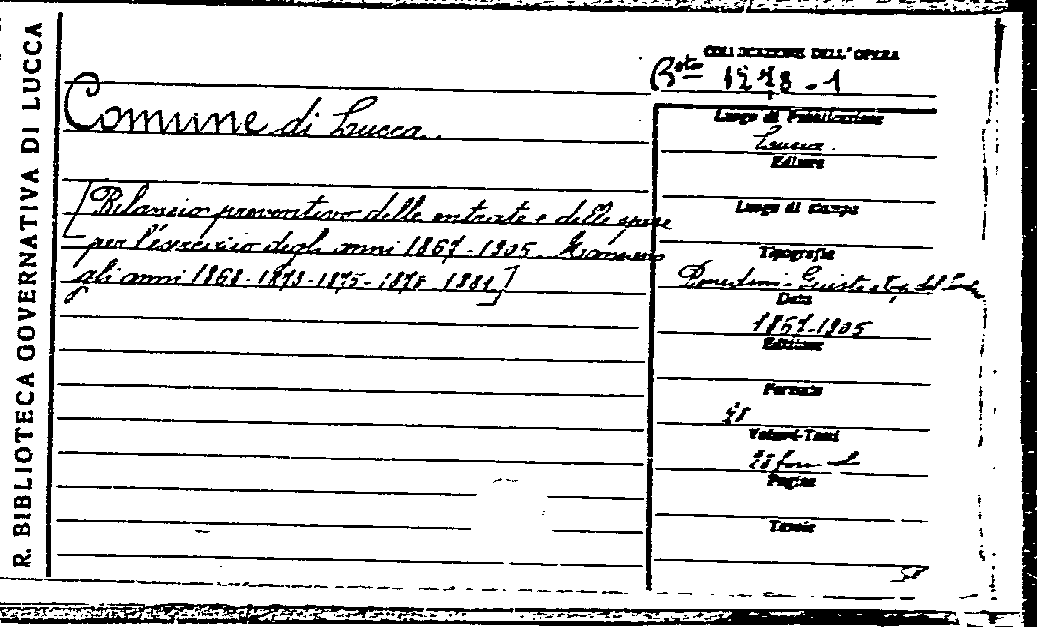 R. BIBLIOTECA GOVERNATIVA DI LUCCA
COLLOCAZIONE DELL'OPERA
Comune di Lucca.
[Bilancio preventivo delle entrate e delle spese
per l'esercizio degli anni 1867-1905. Mancano
gli anni 1868-1873-1875-1878-1881]
Luogo di Pubblicazione
Lucca.
Editore
Luogo di stampa
Tipografia
Giusti
Data
1867-1905
Edizione
Formato
Volumi-Tomi
Pagine
Tavole